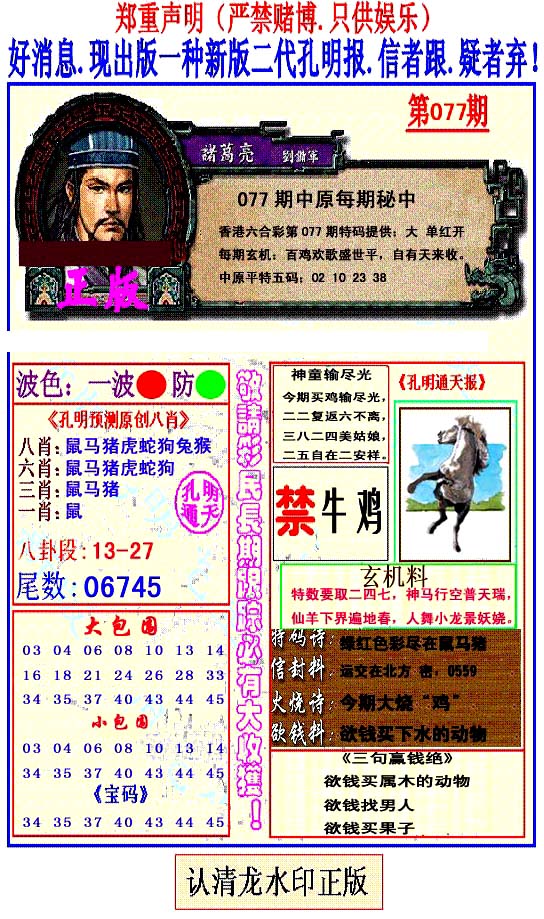 郑重声明（严禁赌博.只供娱乐）
好消息.现出版一种新版二代孔明报.信者跟.疑者弃！
第077期
諸葛亮 劉備軍
077期中原每期秘中
香港六合彩第077期特码提供：大 单红开
每期玄机：百鸡欢歌盛世平，自有天来收。
中原平特五码：02 10 23 38
正版
波色：一波 防
《孔明预测原创八肖》
八肖：鼠马猪虎蛇狗兔猴
六肖：鼠马猪虎蛇狗
三肖：鼠马猪
一肖：鼠
孔明
通天
八卦段：13-27
尾数：06745
大包围
03 04 06 08 10 13 14
16 18 21 24 26 28 33
34 35 37 40 43 44 45
小包围
03 04 06 08 10 13 14
34 35 37 40 43 44 45
《宝码》
34 35 37 40 43 44 45
敬請彩民長期跟踪必有大收獲！
神童输尽光
今期买鸡输尽光，
二二复返六不离，
三八二四美姑娘，
二五自在二安祥。
《孔明通天报》
禁牛鸡
玄机料
特数要取二四七，神马行空普天瑞，
仙羊下界遍地春，人舞小龙景妖娆。
特码诗：绿红色彩尽在鼠马猪
信封料：运交在北方 密，0559
火烧诗：今期大烧“鸡”
欲钱料：欲钱买下水的动物
《三句赢钱绝》
欲钱买属木的动物
欲钱找男人
欲钱买果子
认清龙水印正版